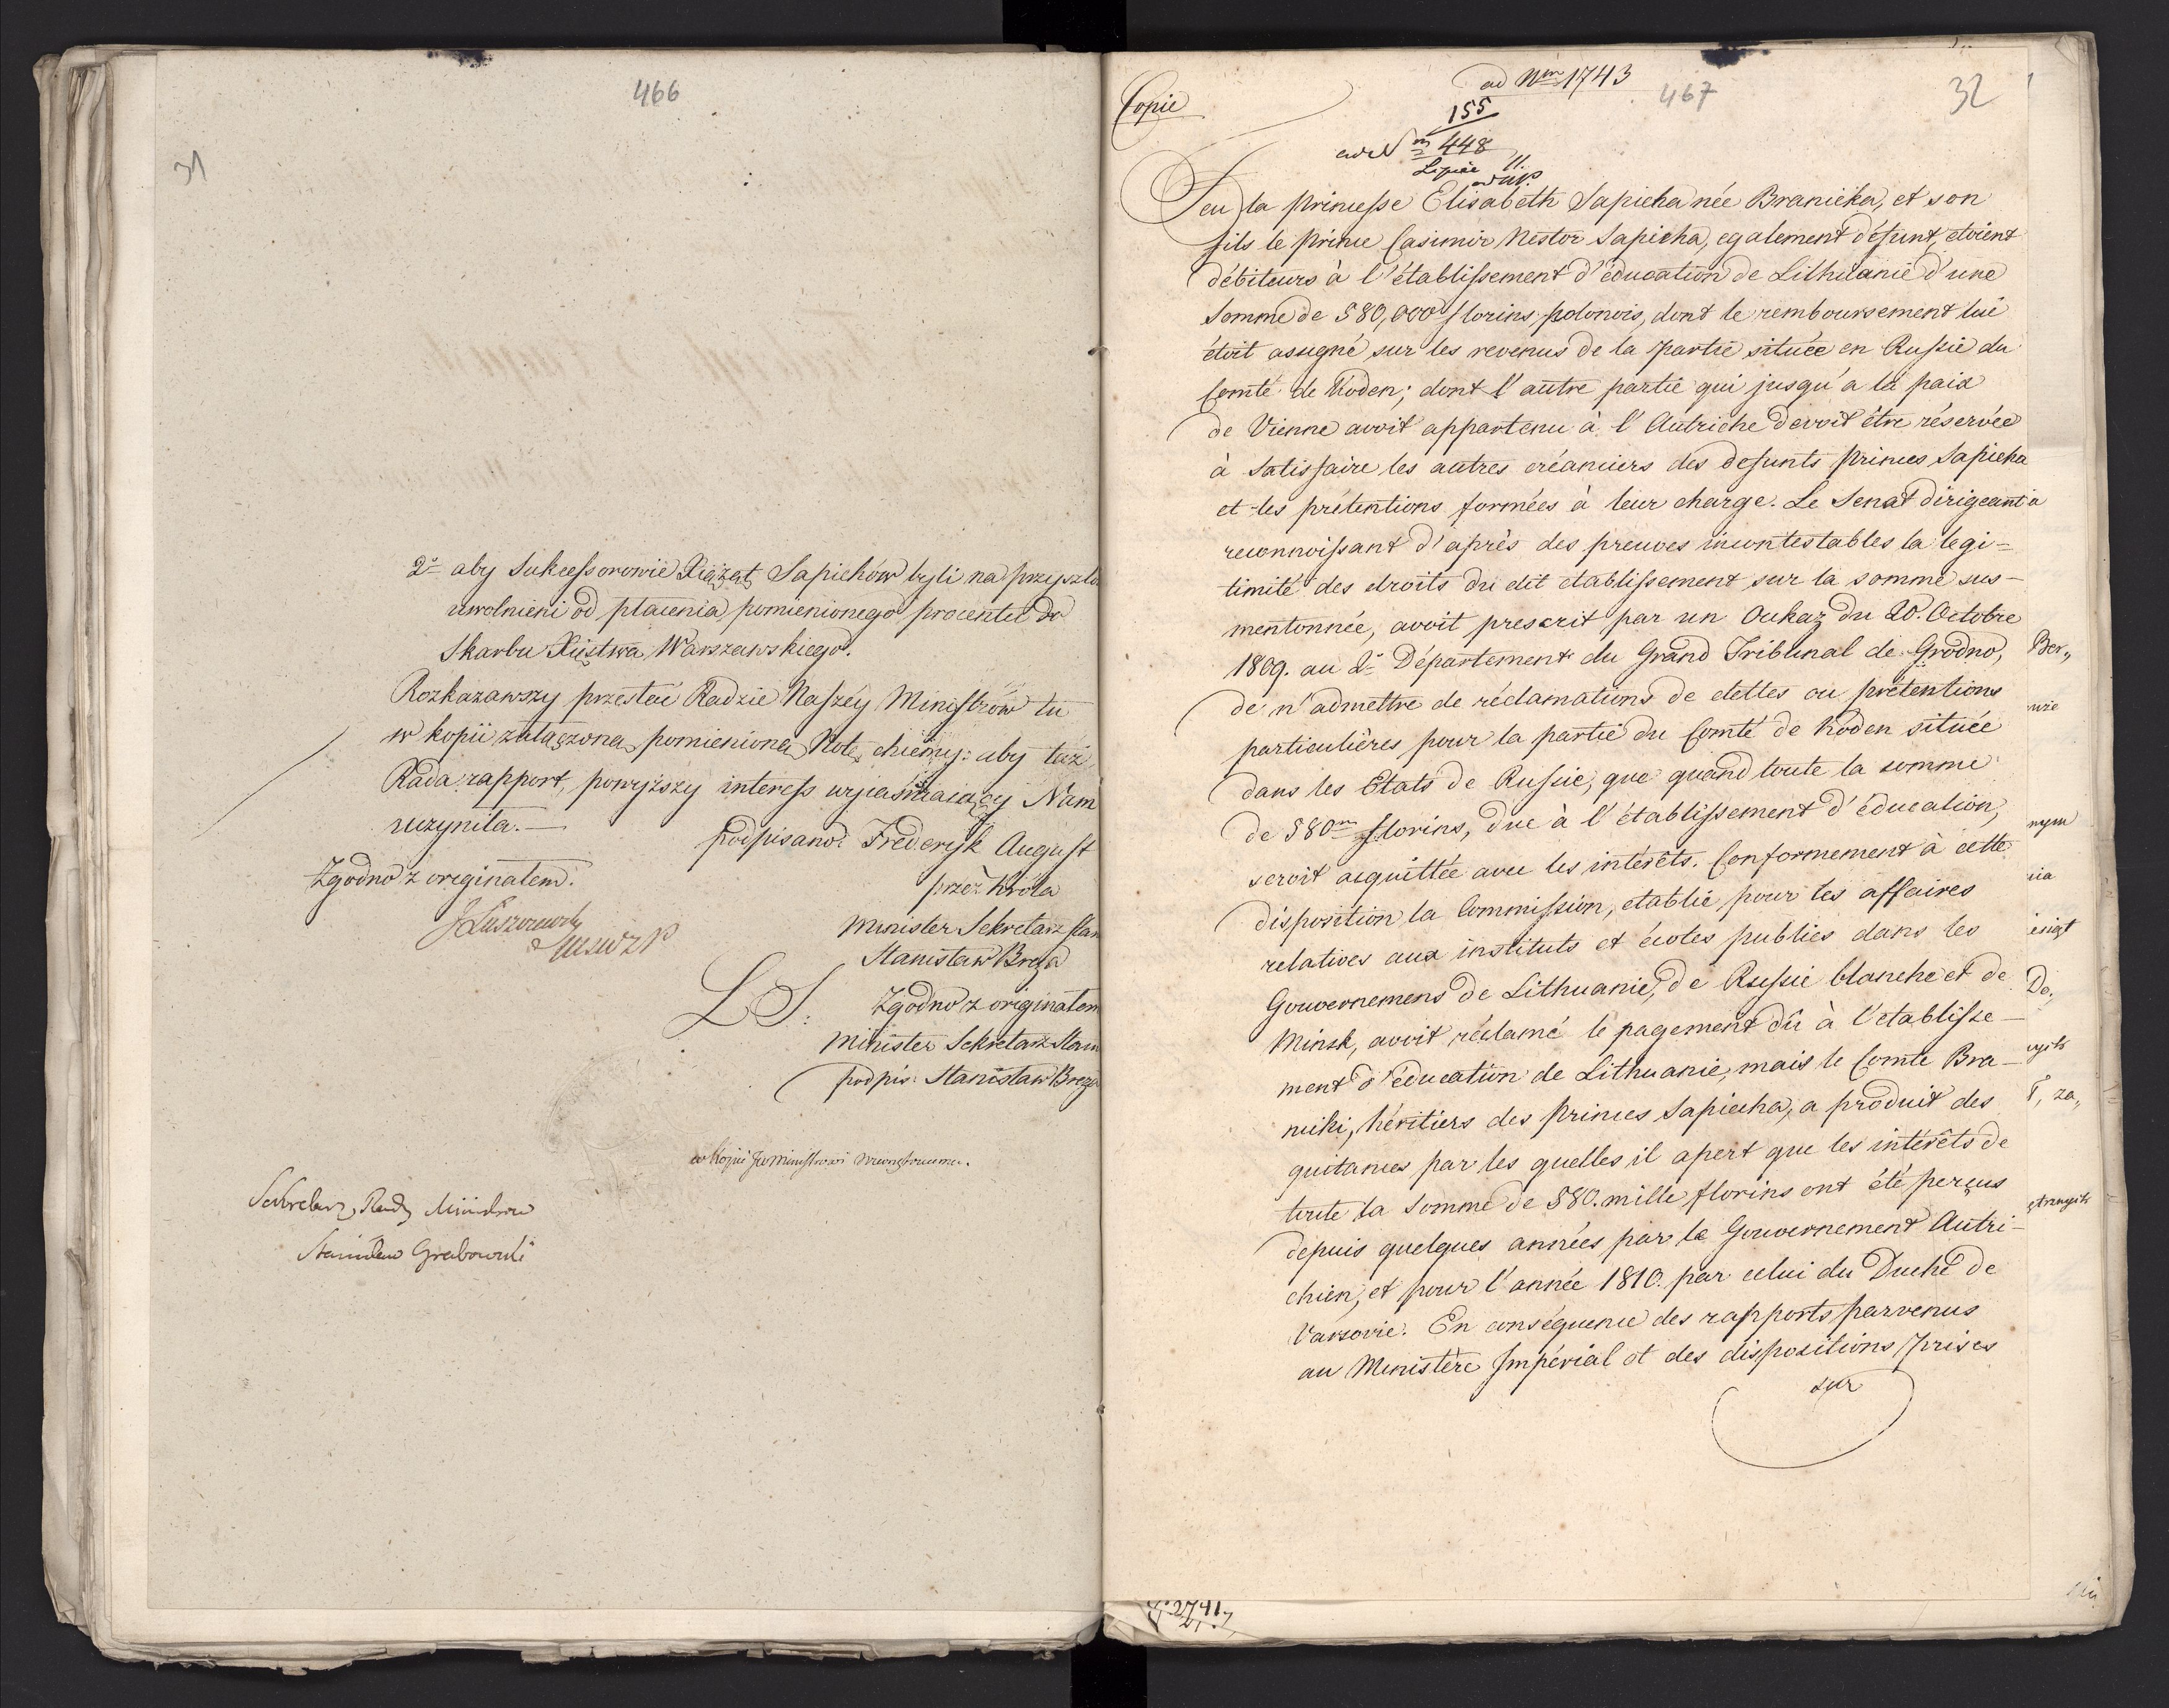 466
31
2º aby Sukcessorowie Xiążąt Sapiehów byli na przyszło
uwolnieni od płacenia pomienionego procentu do
Skarbu Xięstwa Warszawskiego.
Rozkazawszy przesłać Radzie Naszéy Ministrów tu
w kopii załączoną pomienioną Notę, chcemy: aby taż
Rada rapport, powyższy interess wyiaśniaiący Nam
uczyniła.—
podpisano: Frederyk August
Zgodno z oryginałem.
przez Króla
Minister Sekretarz Stan
Stanisław Breza
L S:
Zgodno z originałem
Minister Sekretarz Stanu
podpis: Stanisław Breza
w kopii JW Ministrowi
Sekretarz Rady Ministrów
Stanisław Grabowski
Copie
ad Nm 1743
467
32
155
ad Nm 448
Lipca 11.
Feu la princesse Elisabeth Sapieha née Branicka, et son
fils le prince Casimir Nestor Sapieha, egalement défunt, etoient
débiteurs à l'établissement d'éducation de Lithuanie d'une
Somme de 580,000 florins polonois, dont le remboursement lui
étoit assigné sur les revenus de la partie située en Russie du
Comté de Koden; dont l'autre partie qui jusqu'a la paix
de Vienne avoit appartenu à l'Autriche devoit être réservée
à Satisfaire les autres créanciers des defunts Princes Sapieha
et les prétentions formées à leur charge. Le Senat dirigeant
reconnoissant d'après des preuves incontestables la legi=
timité des droits du dit etablissement sur la somme sus-
mentonnée, avoit prescrit par un Oukaz du 20. Octobre
1809. au 2º Département du Grand Tribunal de Grodno,
de n'admettre de réclamations de dettes ou prétentions
particulières pour la partie du Comté de Koden située
dans les Etats de Russie, que quand toute la somme
de 580m florins, due à l'établissement d'éducation,
seroit acquittée avec les intérêts. Conformement à cette
disposition la Commission, etablie pour les affaires
relatives aux instituts et écoles publies dans les
Gouvernemens de Lithuanie, de Russie blanche et de
Minsk, avoit réclamé le pagement dû à l'etablisse-
ment d'éducation de Lithuanie, mais le Comte Bra-
nicki, héritiers des Princes Sapieha, a produit des
quitances par les quelles il apert que les intérêts de
toute la Somme de 580. mille florins ont été perçus
depuis quelques années par le Gouvernement Autri-
chien, et pour l'année 1810. par celui du Duché de
Varsovie. En conséquence des rapports parvenus
au Ministère Impérial et des dispositions prises
sur
Ber„
wie
nym
nia
Do„
za„
2741